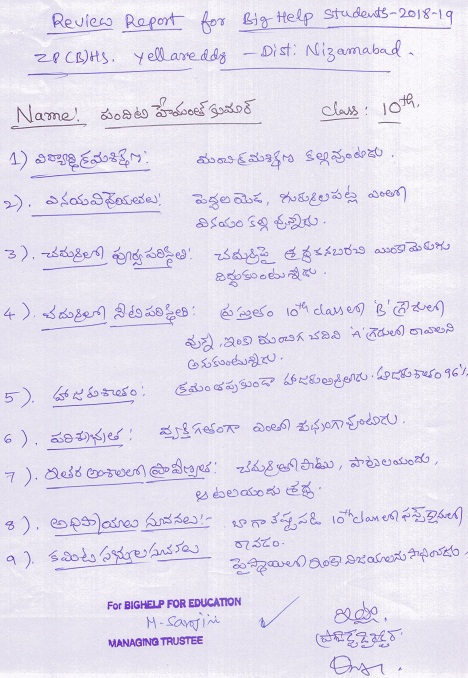 Review Report for Big Help Students-2018-19
ZP(B)HS. Yellareddy - Dist: Nizamabad.
Name: పందిటి హేమంత్ కుమార్ Class: 10th.
1) విద్యార్థి క్రమశిక్షణ: మంచి క్రమశిక్షణ కల్గివుంటాడు.
2). వినయవిధేయతలు: పెద్దల యెడ, గురువులపట్ల ఎంతో
వినయం కల్గి ఉన్నాడు.
3). చదువులో పూర్వపరిస్థితి: చదువుపై శ్రద్ధ కనబరచి యింకా మెరుగు
దిద్దుకుంటున్నాడు.
4). చదువులో నేటిపరిస్థితి: ప్రస్తుతం 10th class లో 'B' గ్రేడులో
ఉన్న, ఇంకా మంచిగ చదివి 'A' గ్రేడులో రావాలని
అనుకుంటున్నాడు.
5). హాజరుశాతం: క్రమం తప్పకుండా హాజరు అవుతాడు. హాజరుశాతం 96%.
6). పరిశుభ్రత: వ్యక్తిగతంగా ఎంతో శుభ్రంగా వుంటాడు.
7). ఇతర అంశాలలో ప్రావీణ్యత: చదువుతో పాటు, పాటలయందు,
ఆటలయందు శ్రద్ధ.
8). అభిప్రాయాలు సూచనలు:- బాగా కష్టపడి 10th class లో ఫస్ట్ క్లాసులో
రావడం.
9). కమిటి సభ్యుల సూచనలు పైస్థాయిలో ఇంకా విజయాలను సాధించడం.
For BIGHELP FOR EDUCATION
M. Sarojini
MANAGING TRUSTEE